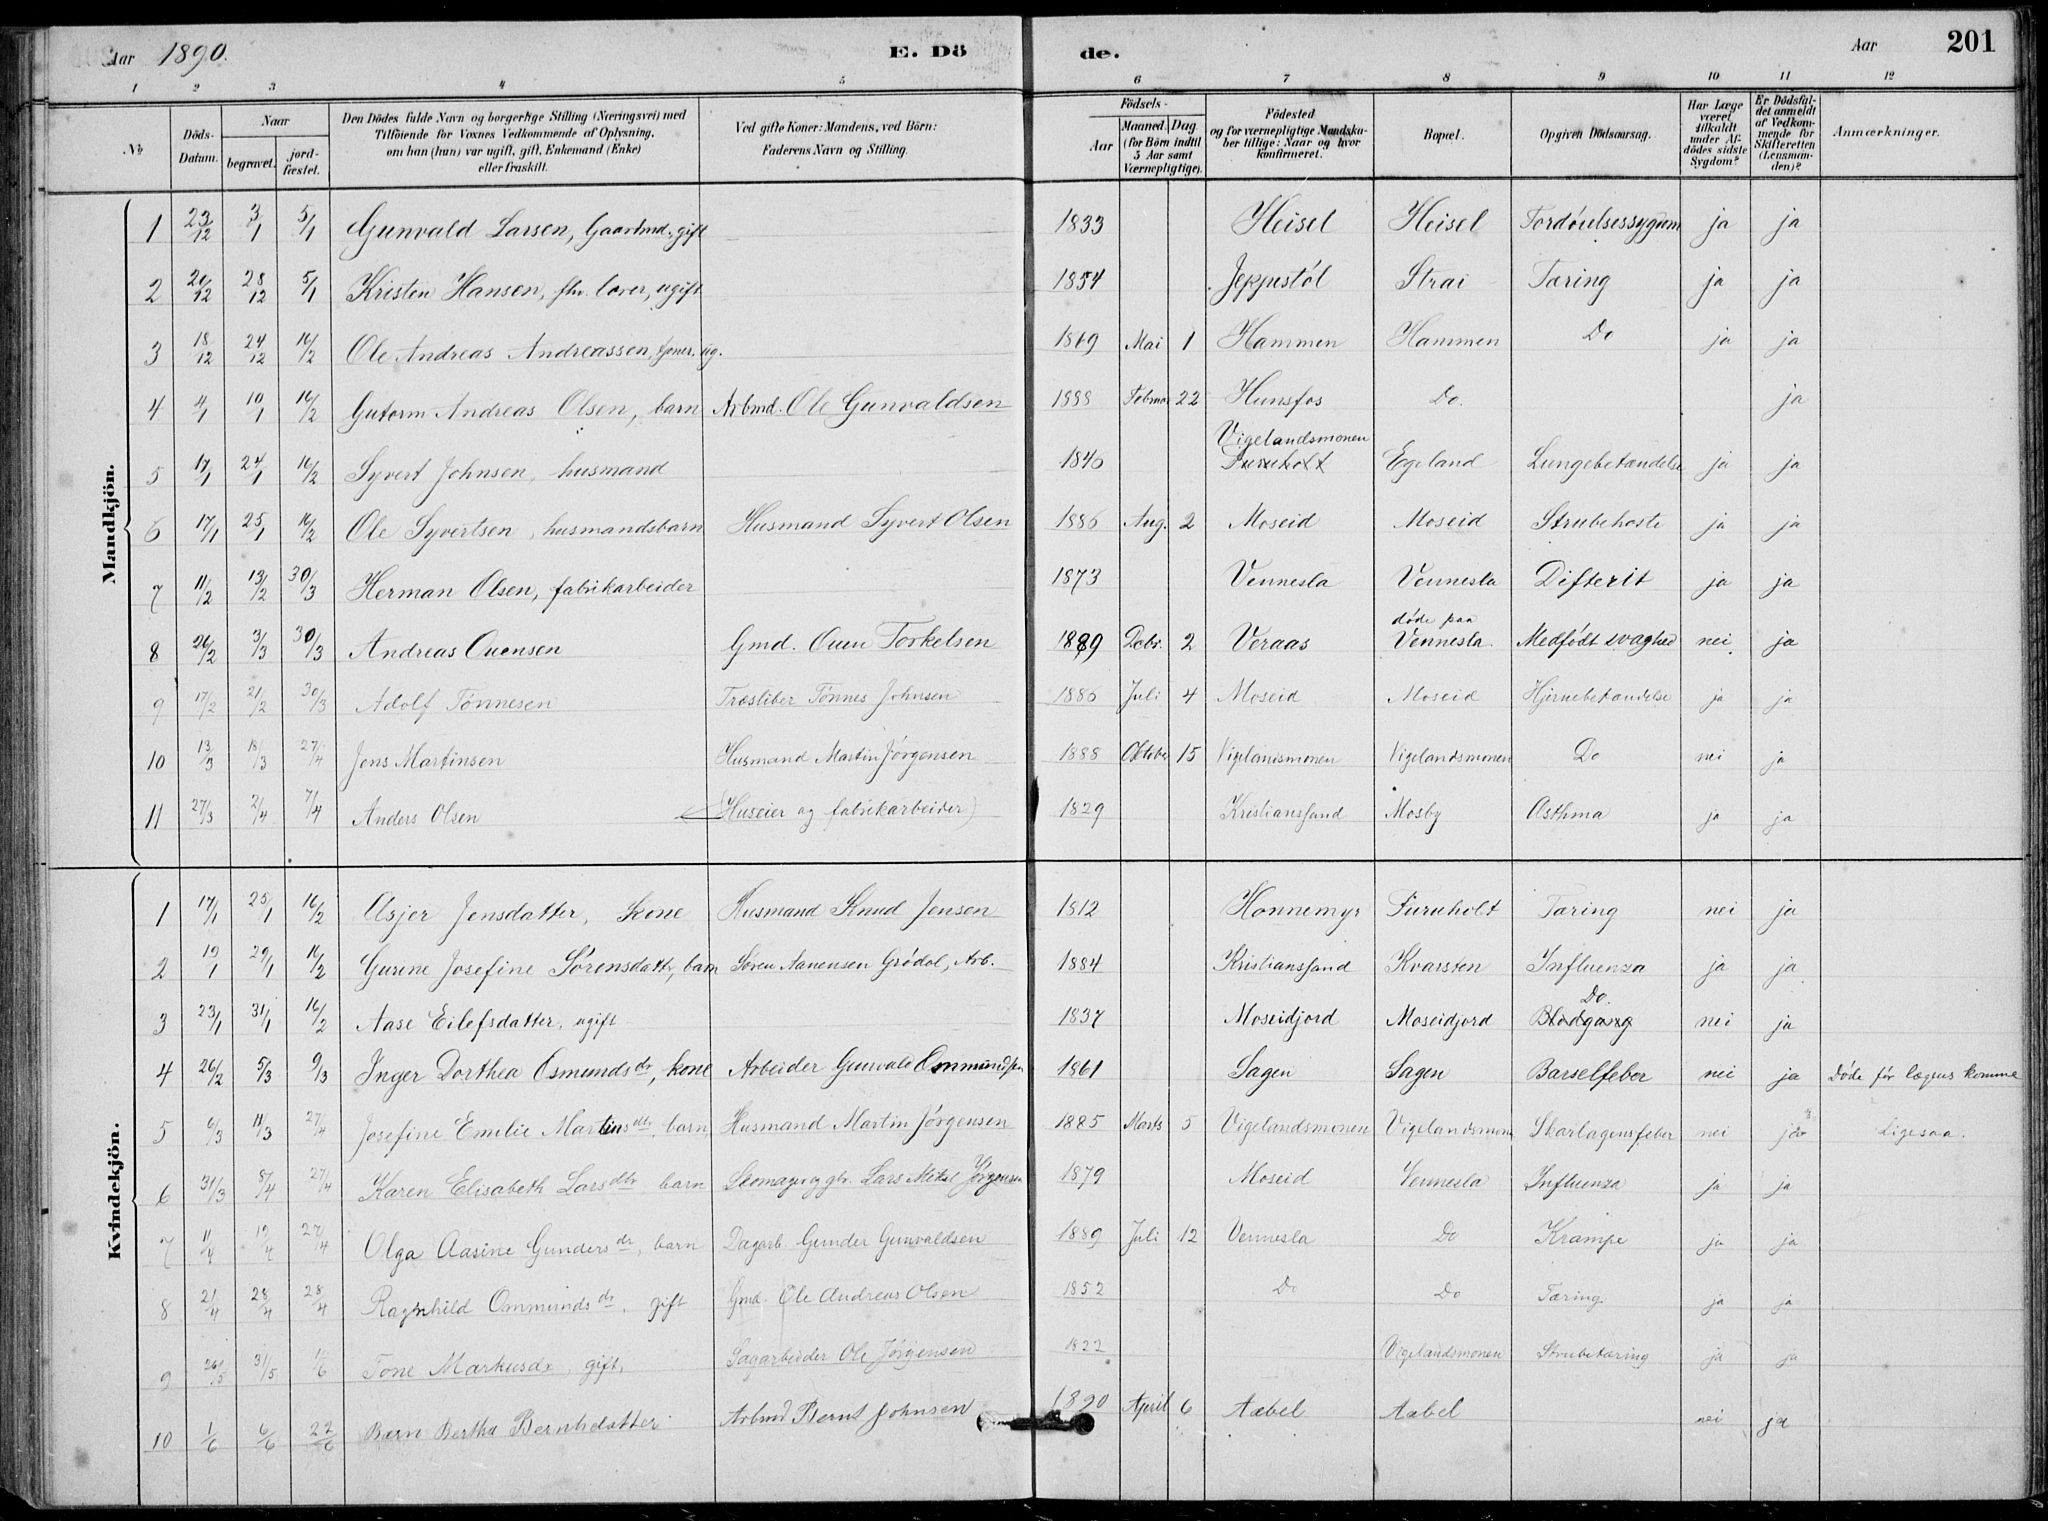 Aar 1890. E. Dö de. Aar 201
1 2 3 4 5 6 7 8 9 10 11 12
No
Döds-Datum.
Naar
begravet.
jordfæstet.
Den Dödes fulde Navn og borgerlige Stilling (Næringsvei) med
Tilföiende for Voxnes Vedkommende af Oplysning,
om han (hun) var ugift, gift, Enkemand (Enke)
eller fraskilt.
Ved gifte Koner: Mandens, ved Börn:
Faderens Navn og Stilling.
Födsels-
Aar
Maaned. Dag
(for Börn indtil
5 Aar samt
Værnepligtige).
Födested
og for værnepligtige Mandska-
ber tillige: Naar og hvor
Konfirmeret.
Bopæl.
Opgiven Dödsaarsag.
Har Læge
været
tilkaldt
under Af-
dödes sidste
Sygdom?
Er Dödsfal-
det anmeldt
af Vedkom-
mende for
Skifteretten
(Lensman-
den)?
Anmærkninger.
Mandkjön.
1 23/12 3/1 5/1 Gunvald Larsen, Gaardmd., gift 1833 Heisel Heisel Fordøielsessygdom ja ja
2 20/12 28/12 5/1 Kristen Hansen, fhv. lærer, ugift 1854 Jeppestöl Strai Tæring ja ja
3 18/12 24/12 16/2 Ole Andreas Andreassen, ug. 1869 Mai 1 Hammen Hammen Do ja ja
4 4/1 10/1 16/2 Gutorm Andreas Olsen, barn Arbmd. Ole Gunvaldsen 1888 Februar 22 Hunsfos Do. ja
5 17/1 24/1 16/2 Syvert Johnsen, husmand 1846 Vigelandsmonen Furuholt Egeland Lungebetændelse ja ja
6 17/1 25/1 16/2 Ole Syvertsen, husmandsbarn Husmand Syvert Olsen 1886 Aug. 2 Moseid Moseid Strubehoste ja ja
7 11/2 13/2 30/3 Herman Olsen, fabrikarbeider 1873 Vennesla Vennesla Difterit ja ja
8 26/2 3/3 30/3 Andreas Ouensen Gmd. Ouen Torkelsen 1889 Debr. 2 Veraas døde paa Vennesla. Medfödt svaghed nei ja
9 17/2 21/2 30/3 Adolf Tönnesen Træsliber Tönnes Johnsen 1886 Juli 4 Moseid Moseid Hjernebetændelse ja ja
10 13/3 18/3 27/4 Jens Martinsen Husmand Martin Jörgensen 1888 Oktober 15 Vigelandsmonen Vigelandsmonen Do nei ja
11 27/3 2/4 7/4 Anders Olsen (Huseier og fabrikarbeider) 1829 Kristianssand Mosby Asthma ja ja
Kvindekjön.
1 17/1 25/1 16/2 Asjer Jensdatter, Kone Husmand Knud Jensen 1812 Honnemyr Furuholt Tæring nei ja
2 19/1 29/1 16/2 Gurine Josefine Sörensdatter, barn Sören Aanensen Grödol, Arb. 1884 Kristianssand Kvarsten Influenza ja ja
3 23/1 31/1 16/2 Aase Eilefsdatter, ugift 1837 Moseidjord Moseidjord Do. Blodgang nei ja
4 26/2 5/3 9/3 Inger Dorthea Osmundsdr, kone Arbeider Gunvald Ommundsen 1861 Sagen Sagen Barselfeber nei ja Døde för lægens komme
5 6/3 11/3 27/4 Josefine Emilie Martinsdtr, barn Husmand Martin Jörgensen 1885 Marts 5 Vigelandsmonen Vigelandsmonen Skarlagensfeber nei ja Ligesaa.
6 31/3 8/4 27/4 Karen Elisabeth Larsdtr barn Skomager og gbr. Lars Mikal Jörgensen 1879 Moseid Vennesla Influenza ja ja
7 11/4 19/4 27/4 Olga Aasine Gundersdr, barn Dagarb. Gunder Gunvaldsen 1889 Juli 12 Vennesla Do Krampe ja ja
8 21/4 28/4 28/4 Ragnhild Ommundsdr, gift Gmd. Ole Andreas Olsen 1852 Do Do Tæring ja ja
9 26/5 31/5 1/6 Tone Markusdr, gift, Sagarbeider Ole Jörgensen 1822 Vigelandsmonen Strubetæring ja ja
10 1/6 6/6 22/6 Barn Bertha Berntsdatter Arbmd Bernt Johnsen 1890 April 6 Aabel Aabel nei ja